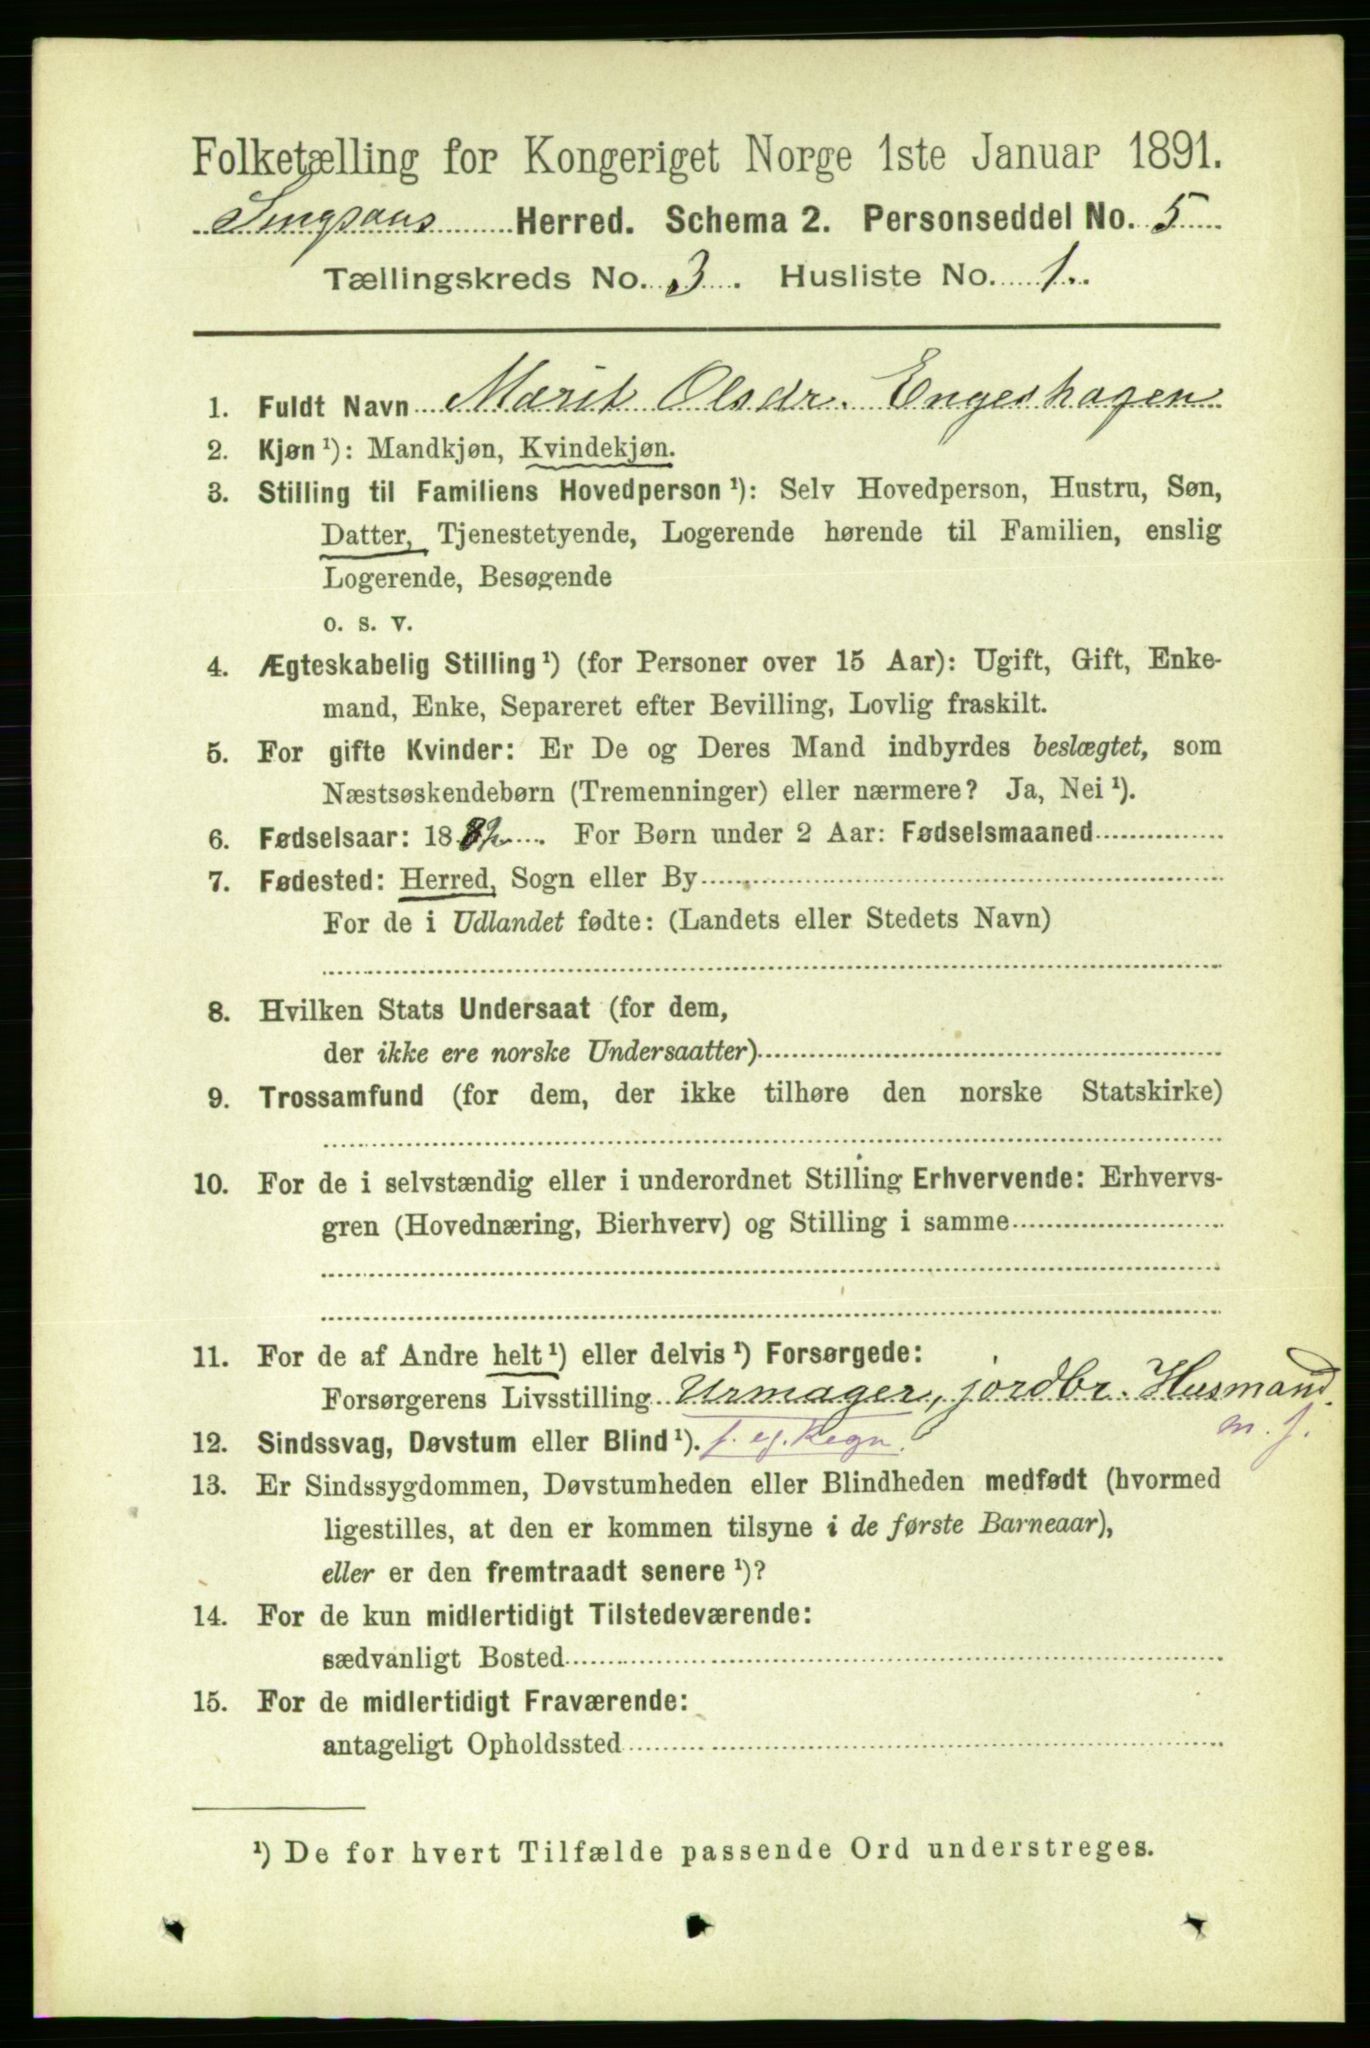 Folketælling for Kongeriget Norge 1ste Januar 1891.
Singsaas Herred. Schema 2. Personseddel No. 5
Tællingskreds No. 3. Husliste No. 1.
1. Fuldt Navn Marit Olsdr. Engeshagen
2. Kjøn ¹): Mandkjøn, Kvindekjøn.
3. Stilling til Familiens Hovedperson ¹): Selv Hovedperson, Hustru, Søn,
Datter, Tjenestetyende, Logerende hørende til Familien, enslig
Logerende, Besøgende
o. s. v.
4. Ægteskabelig Stilling ¹) (for Personer over 15 Aar): Ugift, Gift, Enke-
mand, Enke, Separeret efter Bevilling, Lovlig fraskilt.
5. For gifte Kvinder: Er De og Deres Mand indbyrdes beslægtet, som
Næstsøskendebørn (Tremenninger) eller nærmere? Ja, Nei ¹).
6. Fødselsaar: 1882. For Børn under 2 Aar: Fødselsmaaned
7. Fødested: Herred, Sogn eller By
For de i Udlandet fødte: (Landets eller Stedets Navn)
8. Hvilken Stats Undersaat (for dem,
der ikke ere norske Undersaatter)
9. Trossamfund (for dem, der ikke tilhøre den norske Statskirke)
10. For de i selvstændig eller i underordnet Stilling Erhvervende: Erhvervs-
gren (Hovednæring, Bierhverv) og Stilling i samme
11. For de af Andre helt ¹) eller delvis ¹) Forsørgede:
Forsørgerens Livsstilling Urmager, jordbr. Husmand
m. j.
12. Sindssvag, Døvstum eller Blind ¹). f. eg. Regn.
13. Er Sindssygdommen, Døvstumheden eller Blindheden medfødt (hvormed
ligestilles, at den er kommen tilsyne i de første Barneaar),
eller er den fremtraadt senere ¹)?
14. For de kun midlertidigt Tilstedeværende:
sædvanligt Bosted
15. For de midlertidigt Fraværende:
antageligt Opholdssted
¹) De for hvert Tilfælde passende Ord understreges.